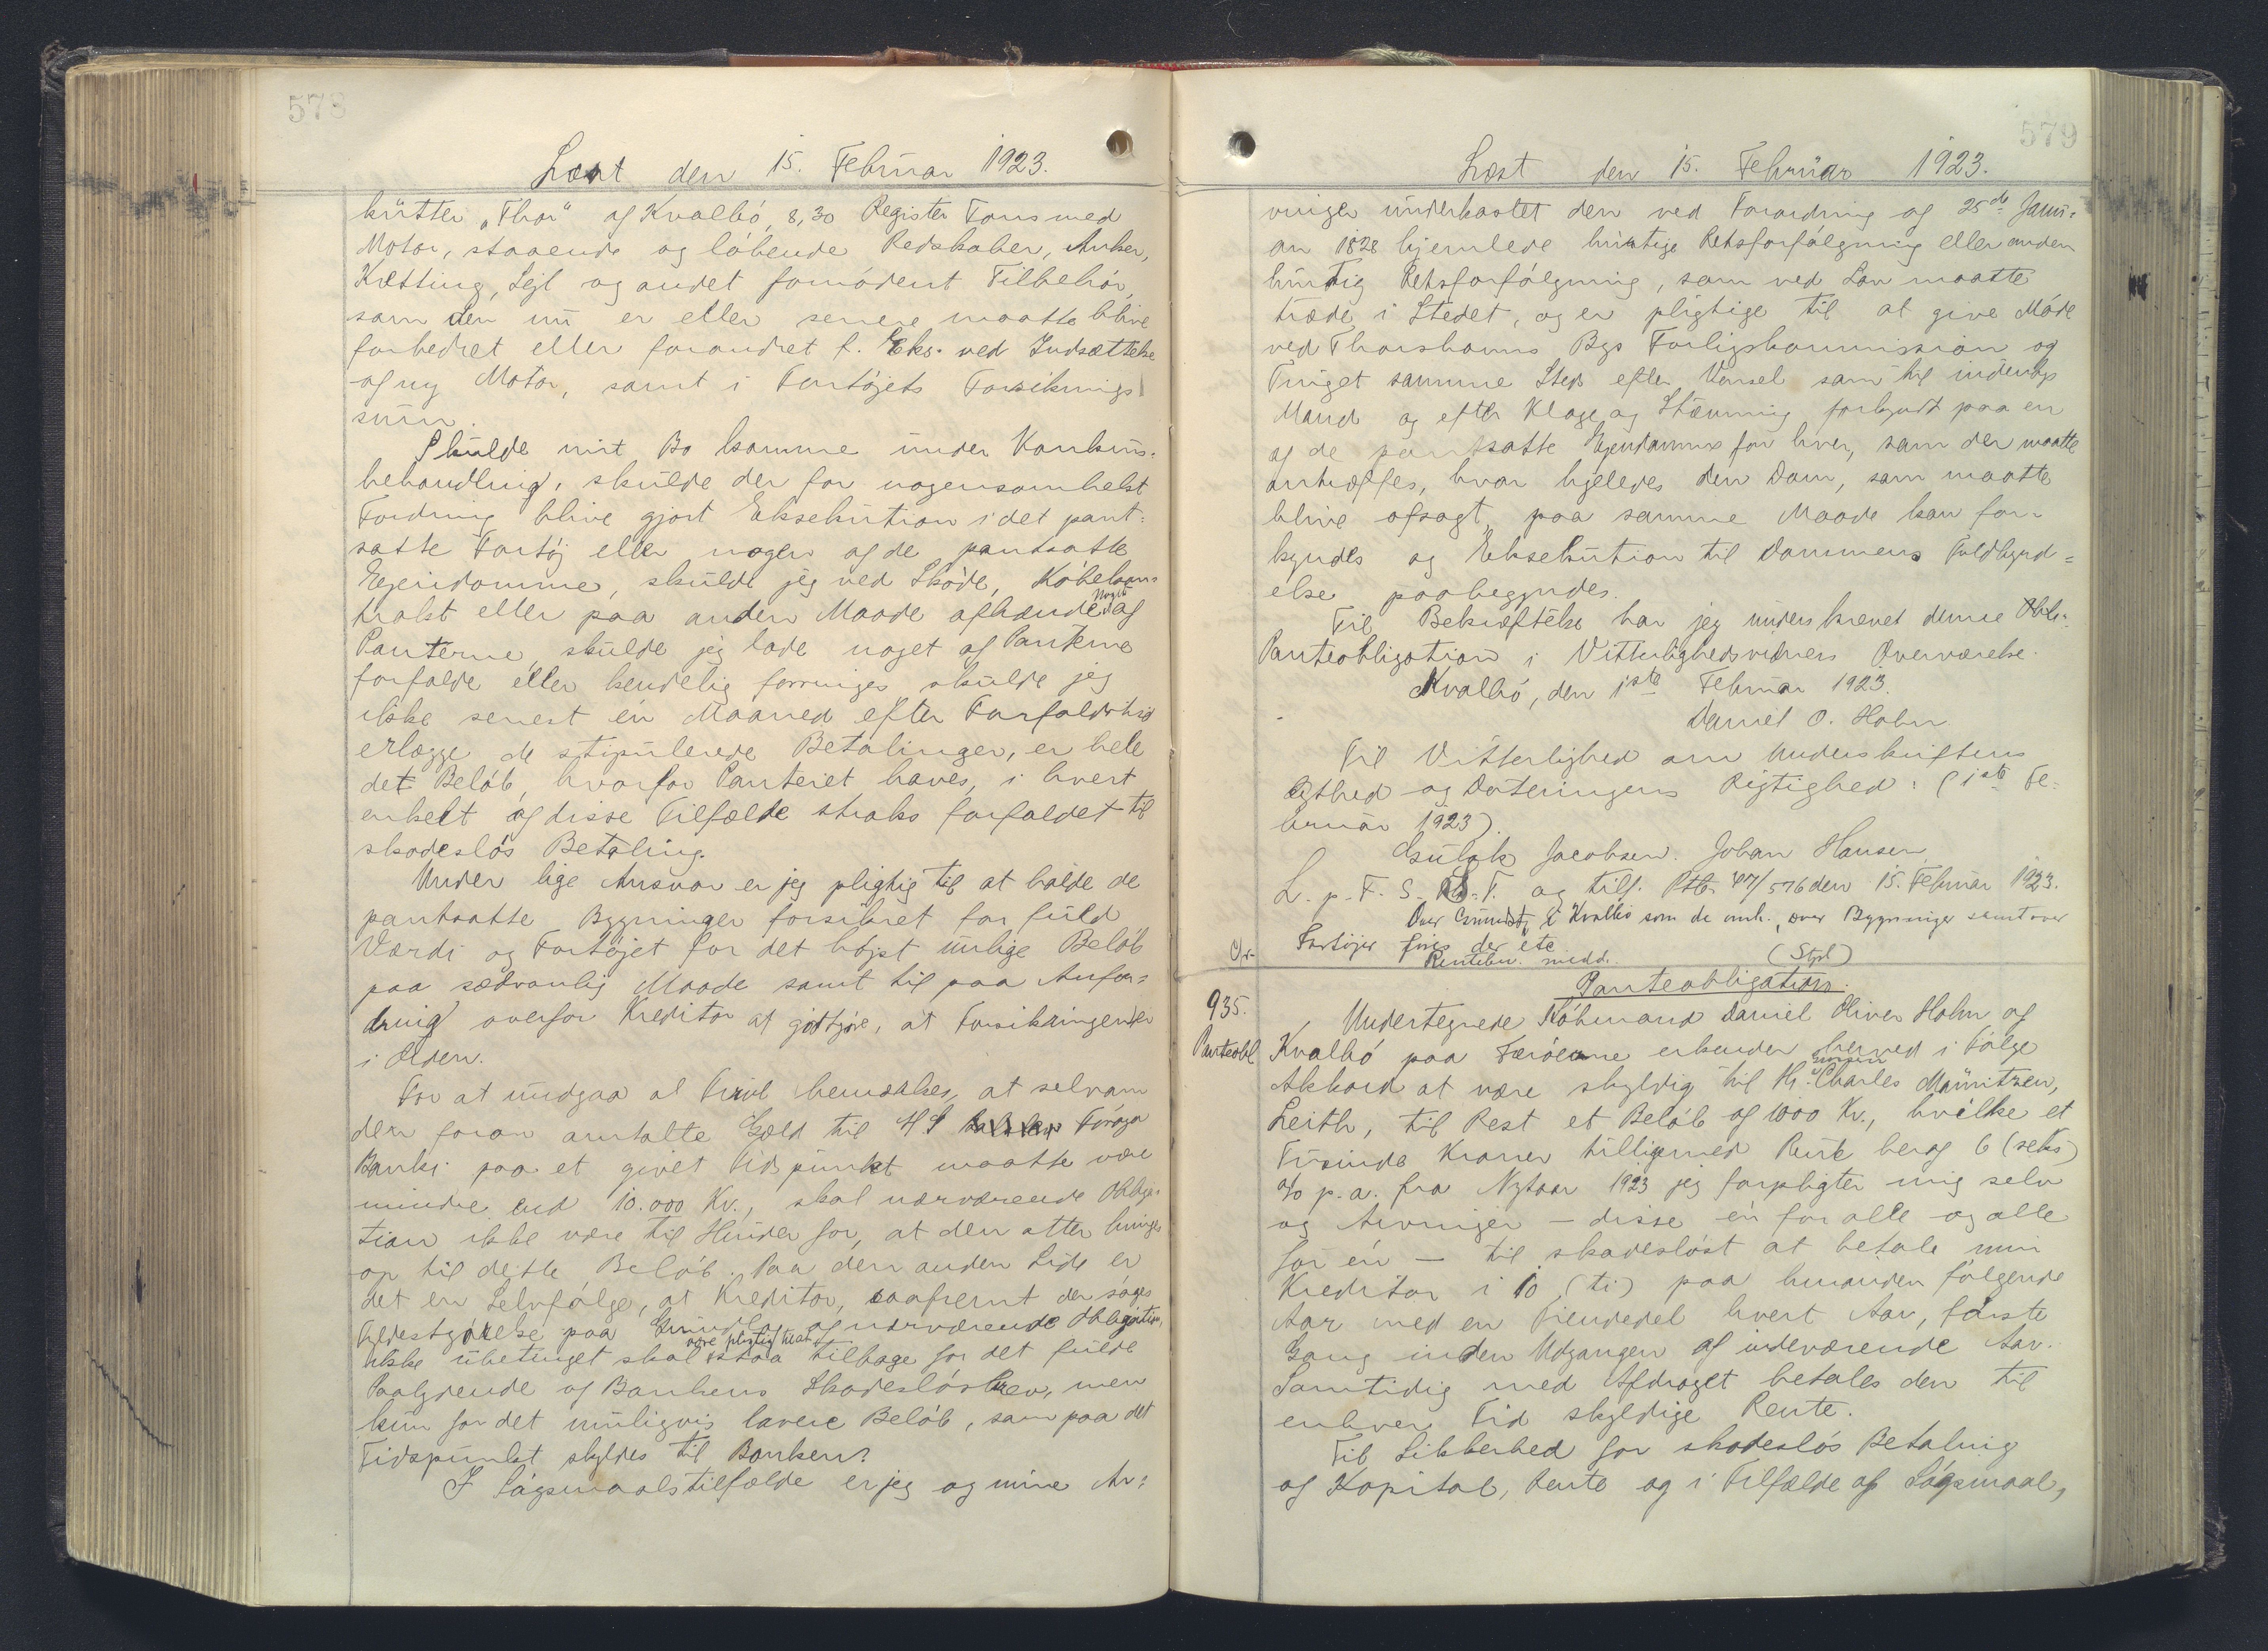 578
Læst den 15. Februar 1923.
kutter „Thor" af Kvalbö, 8,30 Register Tons med
Motor, staaende og löbende Redskaber, Anker,
Kætting, Sejl og andet fornödent Tilbehör,
som den nu er eller senere maatte blive
forbedret eller forandret f. Eks. ved Indsættelse
af ny Motor, samt i Fartöjets Forsikrings
sum.
Skulde mit Bo komme under Konkurs-
behandling, skulde der for nogensomhelst
Fordring blive gjort Eksekution i det pant-
satte Fartöj eller nogen af de pantsatte
Ejendomme, skulde jeg ved Sköde, Köbekon-
trakt eller paa anden Maade afhænde noget af
Panterne, skulde jeg lade noget af Panterne
forfalde eller kendelig forringes skulde jeg
ikke senest én Maaned efter Forfaldstid
erlægge de stipulerede Betalinger, er hele
det Belöb, hvorfor Panteret haves, i hvert
enkelt af disse Tilfælde straks forfaldet til
skadeslös Betaling.
Under lige Ansvar er jeg pligtig til at holde de
pantsatte Bygninger forsikret for fuld
Værdi og Fartöjet for det höjst mulige Belöb
paa sædvanlig Maade samt til paa Anfor-
dring overfor Kreditor at godtgöre, at Forsikringen er
i Orden.
For at undgaa al Tvivl bemærkes, at selvom
den foran anførte Gæld til A/S Föroya
Banki paa et givet Tidspunkt maatte være
mindre end 10.000 Kr., skal nærværende Obliga-
tion ikke være til Hinder for, at den atter bringes
op til dette Belöb. Paa den anden Side er
det en Selvfölge, at Kreditor, saafremt der söges
Fyldestgörelse paa Grundlag af nærværende Obligation,
ikke ubetinget skal være pligtig til at staa tilbage for det fulde
Paalydende af Bankens Skadeslösbrev, men
kun for det muligvis lavere Belöb, som paa det
Tidspunkt skyldes til Banken.
I Sögsmaalstilfælde er jeg og mine Ar-
579
Læst den 15. Februar 1923.
vinger underkastet den ved Forordning af 25de Janu-
ar 1828 hjemlede hurtige Retsforfölgning eller anden
hurtig Retsforfölgning, som ved Lov maatte
træde i Stedet, og er pligtige til at give Möde
ved Thorshavns Bys Forligskommission og
Tinget samme Sted efter Varsel som til indenbys
Mand og efter Klage og Stævning forkyndt paa en
af de pantsatte Ejendomme for hver, som der maatte
antræffes, hvor ligeledes den Dom, som maatte
blive afsagt, paa samme Maade kan for-
kyndes og Eksekution til Dommens Fuldbyrd-
else paabegyndes.
Til Bekræftelse har jeg underskrevet denne
Panteobligation i Vitterlighedsvidners Overværelse.
Kvalbö, den 1ste Februar 1923.
Daniel O. Holm
Til Vitterlighed om Underskriftens
Ægthed og Dateringens Rigtighed: (1ste Fe-
bruar 1923).
Gulak Jacobsen. Johan Hansen
L. p. F. S. T. og tilf. Ptb. 47/576 den 15. Februar 1923.
Over Grundst. i Kvalbö som de omh., over Bygninger samt over
Fartöjer föres der etc
Rentebev. medd. (Stpl)
Panteobligation.
935.
Panteobl
Undertegnede Köbmand Daniel Oliver Holm af
Kvalbö paa Færöerne erkender herved i Fölge
Akkord at være skyldig til Hr. Charles Mauritzen,
Leith, til Rest et Belöb af 1000 Kr., hvilke et
Tusinde Kroner tilligemed Rente heraf 6 (seks)
% p.a. fra Nytaar 1923 jeg forpligter mig selv
og Arvinger – disse én for alle og alle
for én – til skadeslöst at betale min
Kreditor i 10 (ti) paa hinanden fölgende
Aar med en Tiendedel hvert Aar, förste
Gang inden Udgangen af indeværende Aar.
Samtidig med Afdraget betales den til
enhver Tid skyldige Rente.
Til Sikkerhed for skadeslös Betaling
af Kapital, Rente og i Tilfælde af Sögsmaal,